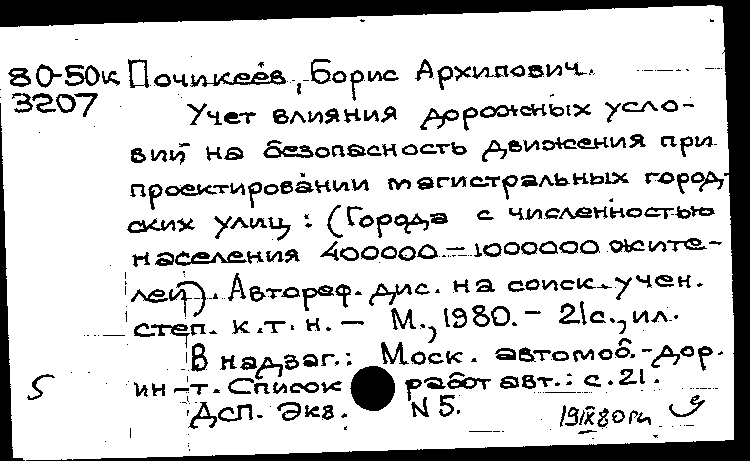 80-50к Почикеев, Борис Архипович.
3207 Учет влияния дорожных усло-
вий на безопасность движения при
проектировании магистральных город-
ских улиц : (Города с численностью
населения 400000 – 1000000 жите-
лей). Автореф. дис. на соиск. учен.
степ. к.т.н. – М., 1980. – 21с., ил.
В надзаг.: Моск. автомоб.-дор.
ин-т. Список работ авт.: с. 21.
S ДСП. Экз. N 5.
19IX80